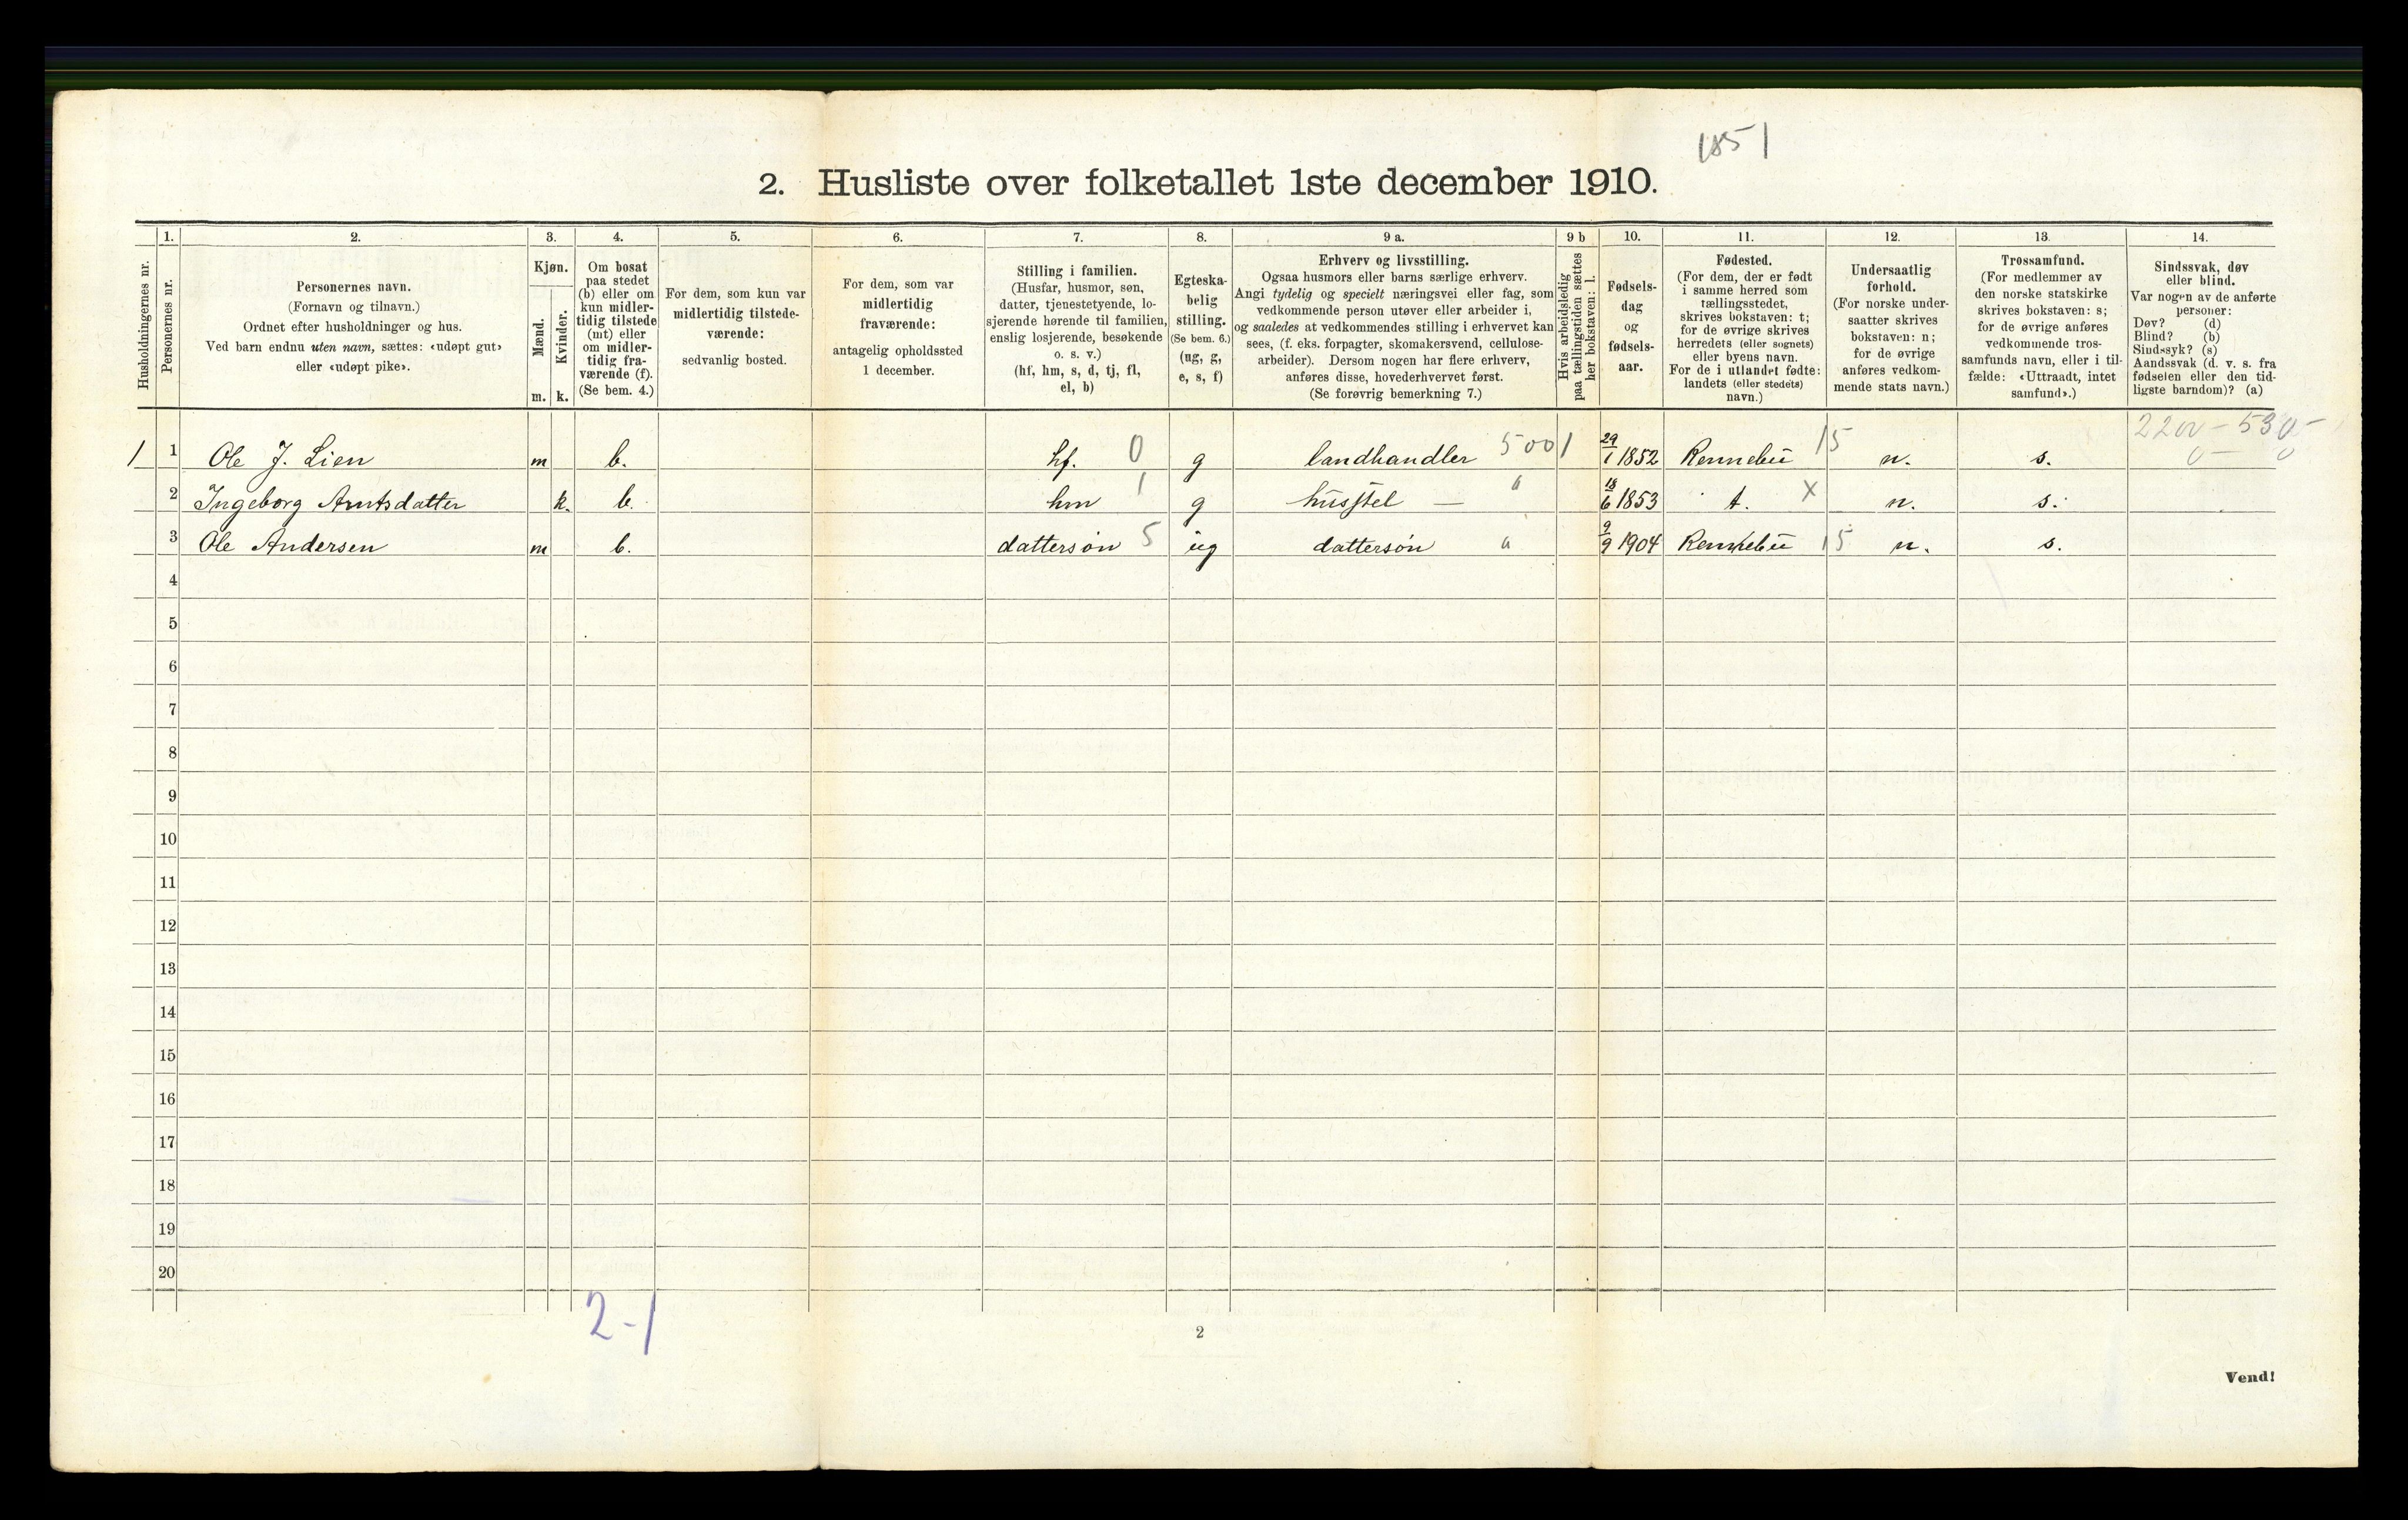 1851
2. Husliste over folketallet 1ste december 1910.
Husholdningernes nr.
1.
Personernes nr.
2.
Personernes navn.
(Fornavn og tilnavn.)
Ordnet efter husholdninger og hus.
Ved barn endnu uten navn, sættes: «udøpt gut»
eller «udøpt pike».
3.
Kjøn.
Mænd.
Kvinder.
m. k.
4.
Om bosat
paa stedet
(b) eller om
kun midler-
tidig tilstede
(mt) eller
om midler-
tidig fra-
værende (f).
(Se bem. 4.)
5.
For dem, som kun var
midlertidig tilstede-
værende:
sedvanlig bosted.
6.
For dem, som var
midlertidig
fraværende:
antagelig opholdssted
1 december.
7.
Stilling i familien.
(Husfar, husmor, søn,
datter, tjenestetyende, lo-
sjerende hørende til familien,
enslig losjerende, besøkende
o. s. v.)
(hf, hm, s, d, tj, fl,
el, b)
8.
Egteska-
belig
stilling.
(Se bem. 6.)
(ug, g,
e, s, f)
9 a.
Erhverv og livsstilling.
Ogsaa husmors eller barns særlige erhverv.
Angi tydelig og specielt næringsvei eller fag, som
vedkommende person utøver eller arbeider i,
og saaledes at vedkommendes stilling i erhvervet kan
sees, (f. eks. forpagter, skomakersvend, cellulose-
arbeider). Dersom nogen har flere erhverv,
anføres disse, hovederhvervet først.
(Se forøvrig bemerkning 7.)
9 b
Hvis arbeidsledig
paa tællingstiden sættes
her bokstaven: l.
10.
Fødsels-
dag
og
fødsels-
aar.
11.
Fødested.
(For dem, der er født
i samme herred som
tællingsstedet,
skrives bokstaven: t;
for de øvrige skrives
herredets (eller sognets)
eller byens navn.
For de i utlandet fødte:
landets (eller stedets)
navn.)
12.
Undersaatlig
forhold.
(For norske under-
saatter skrives
bokstaven: n;
for de øvrige
anføres vedkom-
mende stats navn.)
13.
Trossamfund.
(For medlemmer av
den norske statskirke
skrives bokstaven: s;
for de øvrige anføres
vedkommende tros-
samfunds navn, eller i til-
fælde: «Uttraadt, intet
samfund».)
14.
Sindssvak, døv
eller blind.
Var nogen av de anførte
personer:
Døv? (d)
Blind? (b)
Sindssyk? (s)
Aandssvak (d. v. s. fra
fødselen eller den tid-
ligste barndom)? (a)
2200 - 530 -
0 - 0
1 1 Ole J. Lien m b. hf. 0 g landhandler 5001 29/1 1852 Rennebu 15 n. s.
2 Ingeborg Arntsdatter k. b. hm 1 g husstel — " 18/6 1853 t. x n. s.
3 Ole Andersen m b. dattersøn 5 ug dattersøn " 9/9 1904 Rennebu 15 n. s.
4
5
6
7
8
9
10
11
12
13
14
15
16
17
18
19
20
2-1
2
Vend!